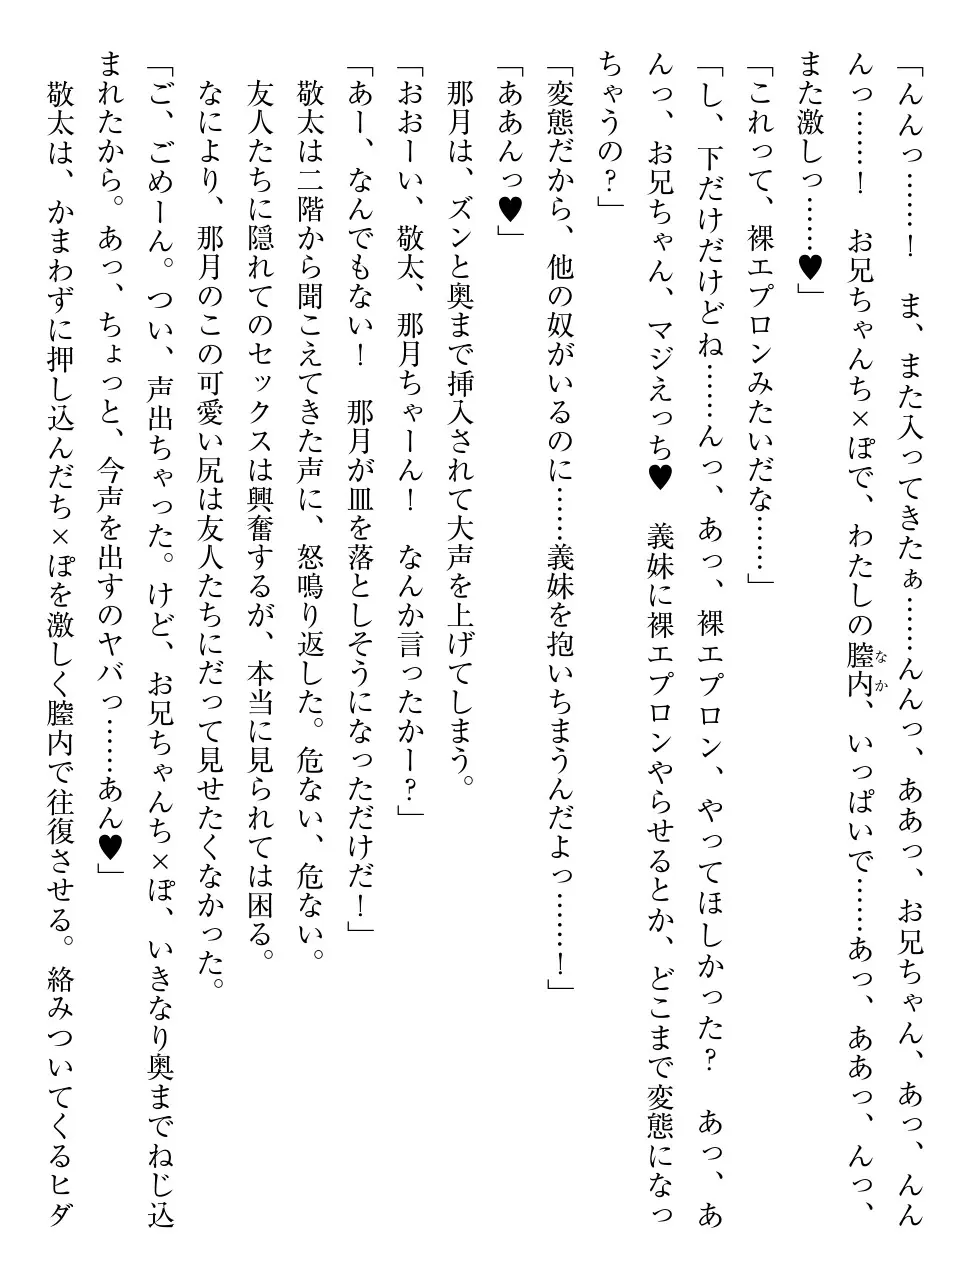 「んんっ……！　ま、また入ってきたぁ……んんっ、ああっ、お兄ちゃん、あっ、んん
んっ……！　お兄ちゃんち×ぽで、わたしの膣内、いっぱいで……あっ、ああっ、んっ、
なか
また激しっ……♥」
「これって、裸エプロンみたいだな……」
「し、下だけだけどね……んっ、あっ、裸エプロン、やってほしかった？　あっ、あ
んっ、お兄ちゃん、マジえっち♥　義妹に裸エプロンやらせるとか、どこまで変態になっ
ちゃうの？」
「変態だから、他の奴がいるのに……義妹を抱いちまうんだよっ……！」
「ああんっ♥」
那月は、ズンと奥まで挿入されて大声を上げてしまう。
「おおーい、敬太、那月ちゃーん！　なんか言ったかー？」
「あー、なんでもない！　那月が皿を落としそうになっただけだ！」
敬太は二階から聞こえてきた声に、怒鳴り返した。危ない、危ない。
友人たちに隠れてのセックスは興奮するが、本当に見られては困る。
なにより、那月のこの可愛い尻は友人たちにだって見せたくなかった。
「ご、ごめーん。つい、声出ちゃった。けど、お兄ちゃんち×ぽ、いきなり奥までねじ込
まれたから。あっ、ちょっと、今声を出すのヤバっ……あん♥」
敬太は、かまわずに押し込んだち×ぽを激しく膣内で往復させる。絡みついてくるヒダ